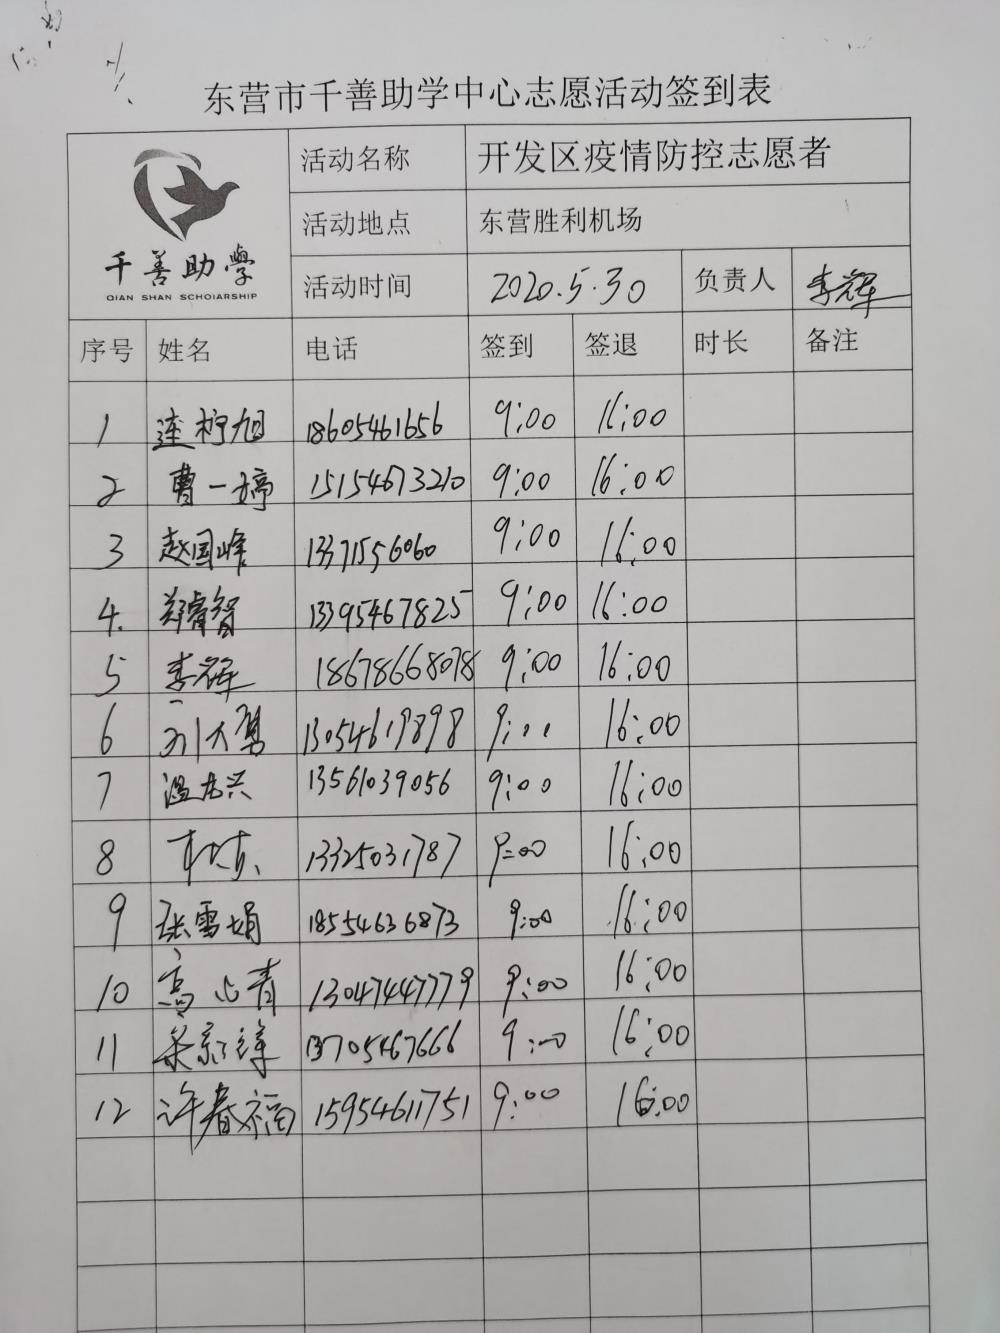 东营市千善助学中心志愿活动签到表
千善助學
QIAN SHAN SCHOIARSHIP
活动名称 开发区疫情防控志愿者
活动地点 东营胜利机场
活动时间 2020.5.30 负责人 李辉
序号 姓名 电话 签到 签退 时长 备注
1 连柠旭 18605461656 9:00 16:00
2 曹一婷 15154673210 9:00 16:00
3 赵国峰 13371556060 9:00 16:00
4. 郑睿智 13395467825 9:00 16:00
5 李辉 18678668078 9:00 16:00
6 刘大勇 13054619898 9:00 16:00
7 温志兴 13561039056 9:00 16:00
8 13325031787 9:00 16:00
9 张雪娟 18554636873 9:00 16:00
10 高心青 13047447779 9:00 16:00
11 13705467666 9:00 16:00
12 许春福 15954611751 9:00 16:00